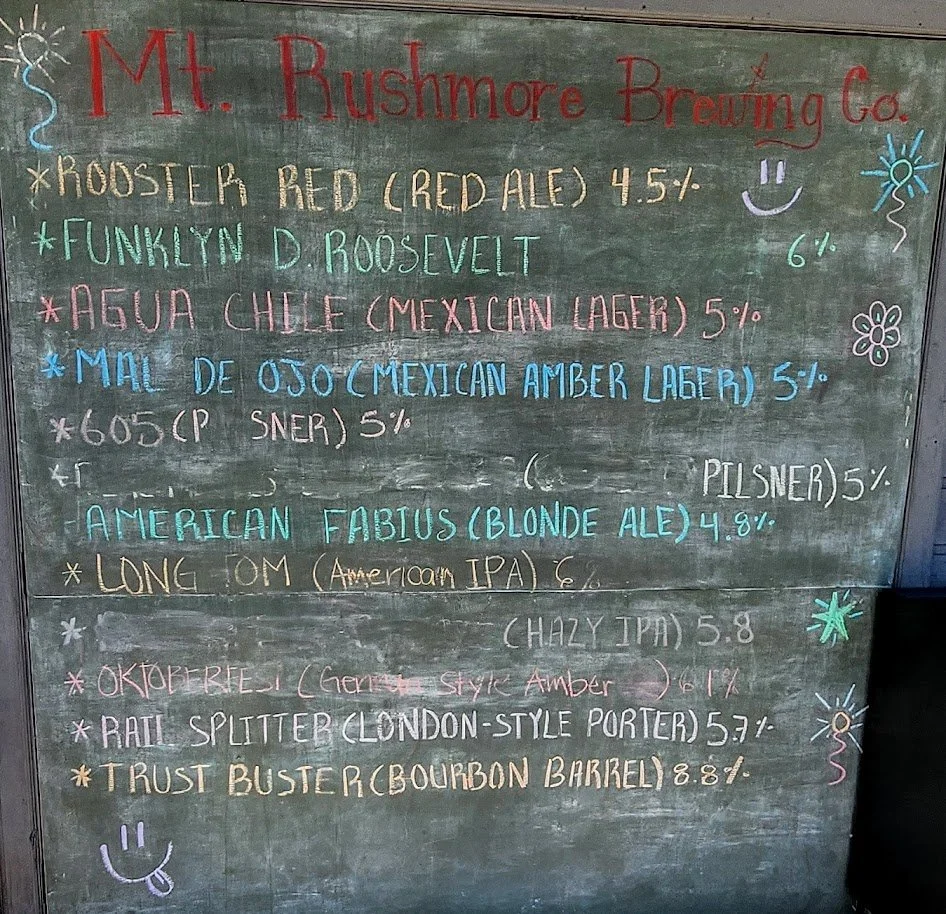 Mt. Rushmore Brewing Co.
*ROOSTER RED (RED ALE) 4.5%
*FUNKLYN D. ROOSEVELT 6%
*AGUA CHILE (MEXICAN LAGER) 5%
*MAL DE OJO (MEXICAN AMBER LAGER) 5%
*605 (P SNER) 5%
PILSNER) 5%
AMERICAN FABIUS (BLONDE ALE) 4.8%
* LONG TOM (American IPA) 6%
* (HAZY IPA) 5.8
* OKTOBERFEST (German Style Amber ) 6.1%
* RAIL SPLITTER (LONDON-STYLE PORTER) 5.7%
* TRUST BUSTER (BOURBON BARREL) 8.8%